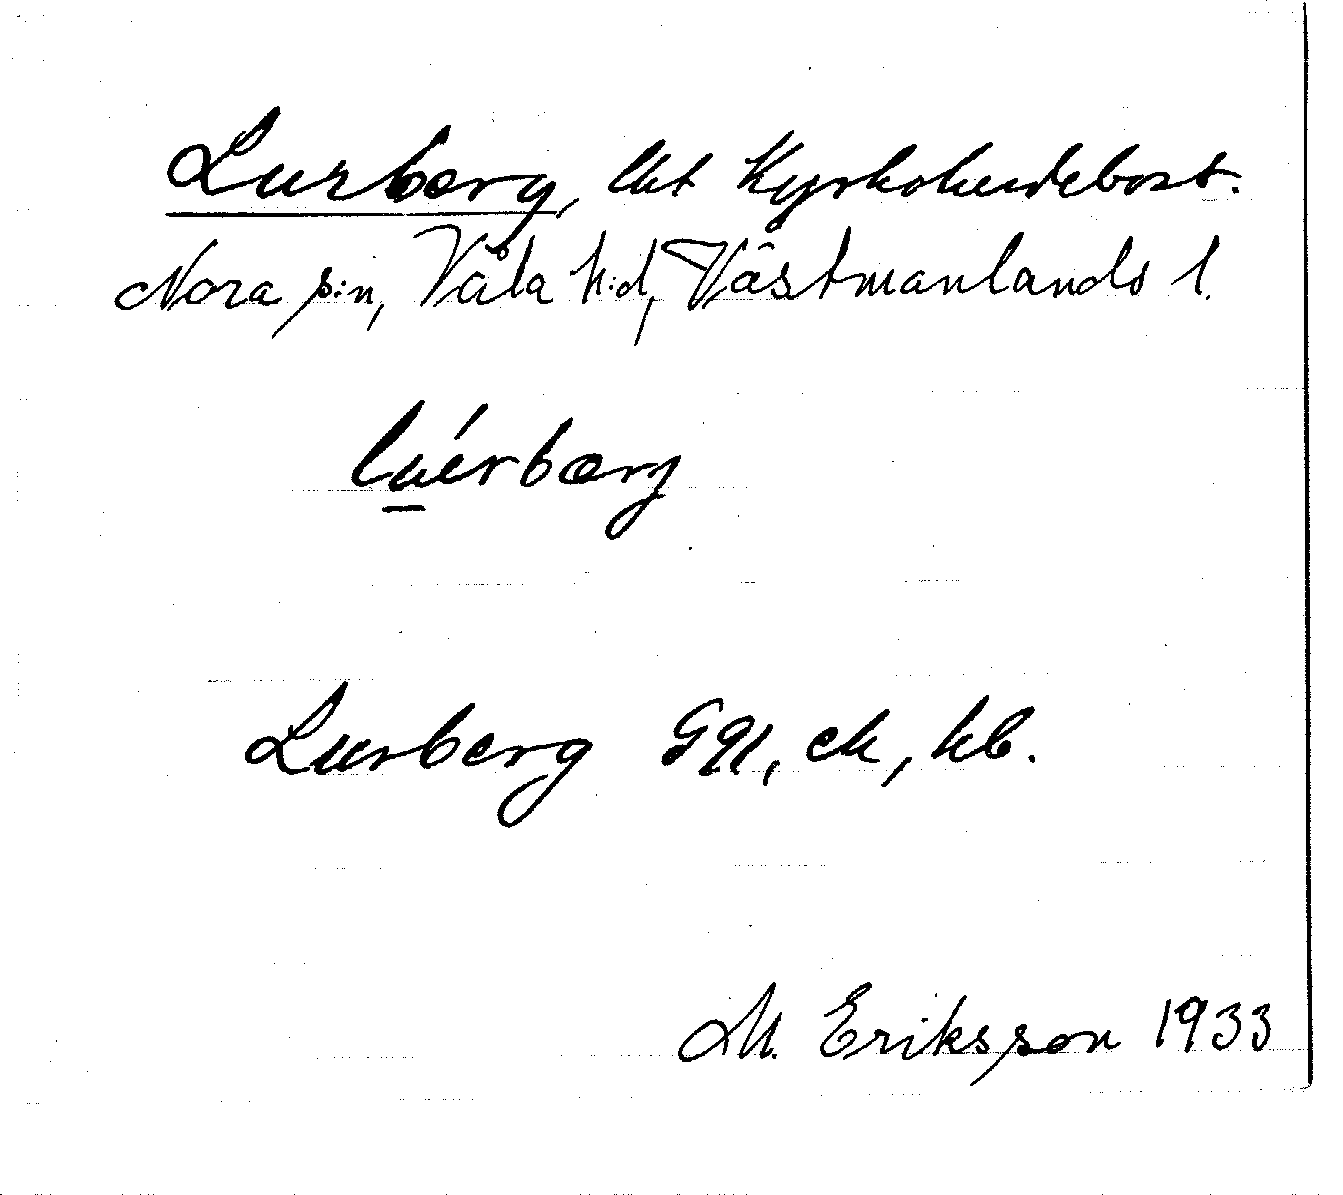 Lurberg, lht Kyrkoherdebost.
Nora s:n, Våla h:d, Västmanlands l.
luérbærj
Lurberg GK, ek, kb.
M. Eriksson 1933